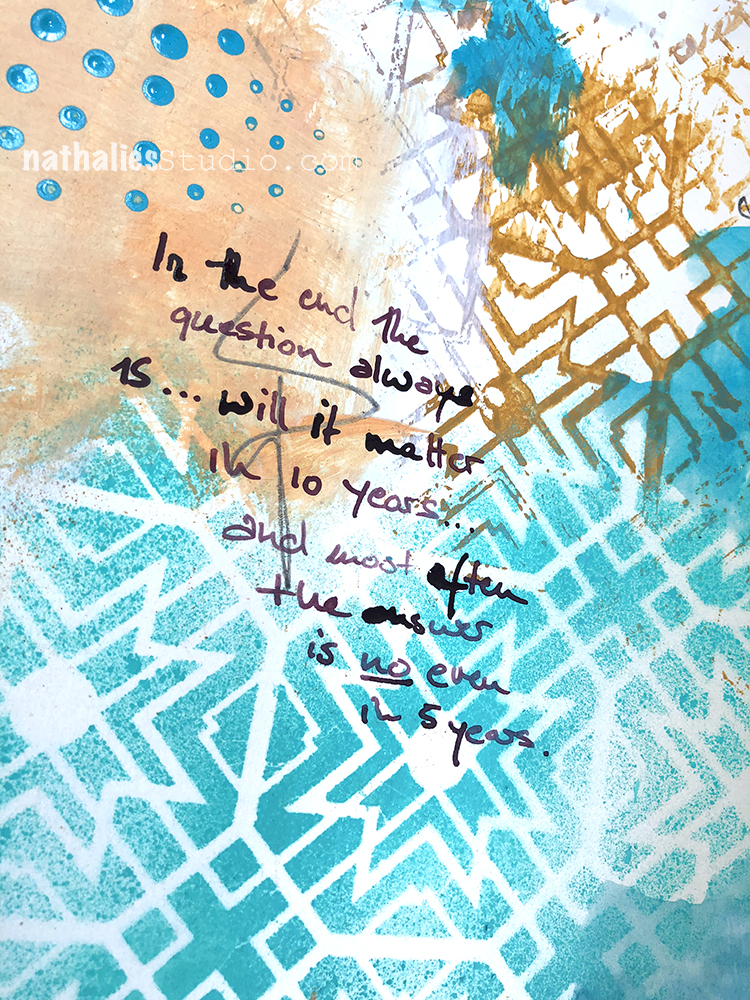 nathaliesstudio.com
In the end the
question always
is... will it matter
in 10 years...
and most often
the answer
is no even
in 5 years.